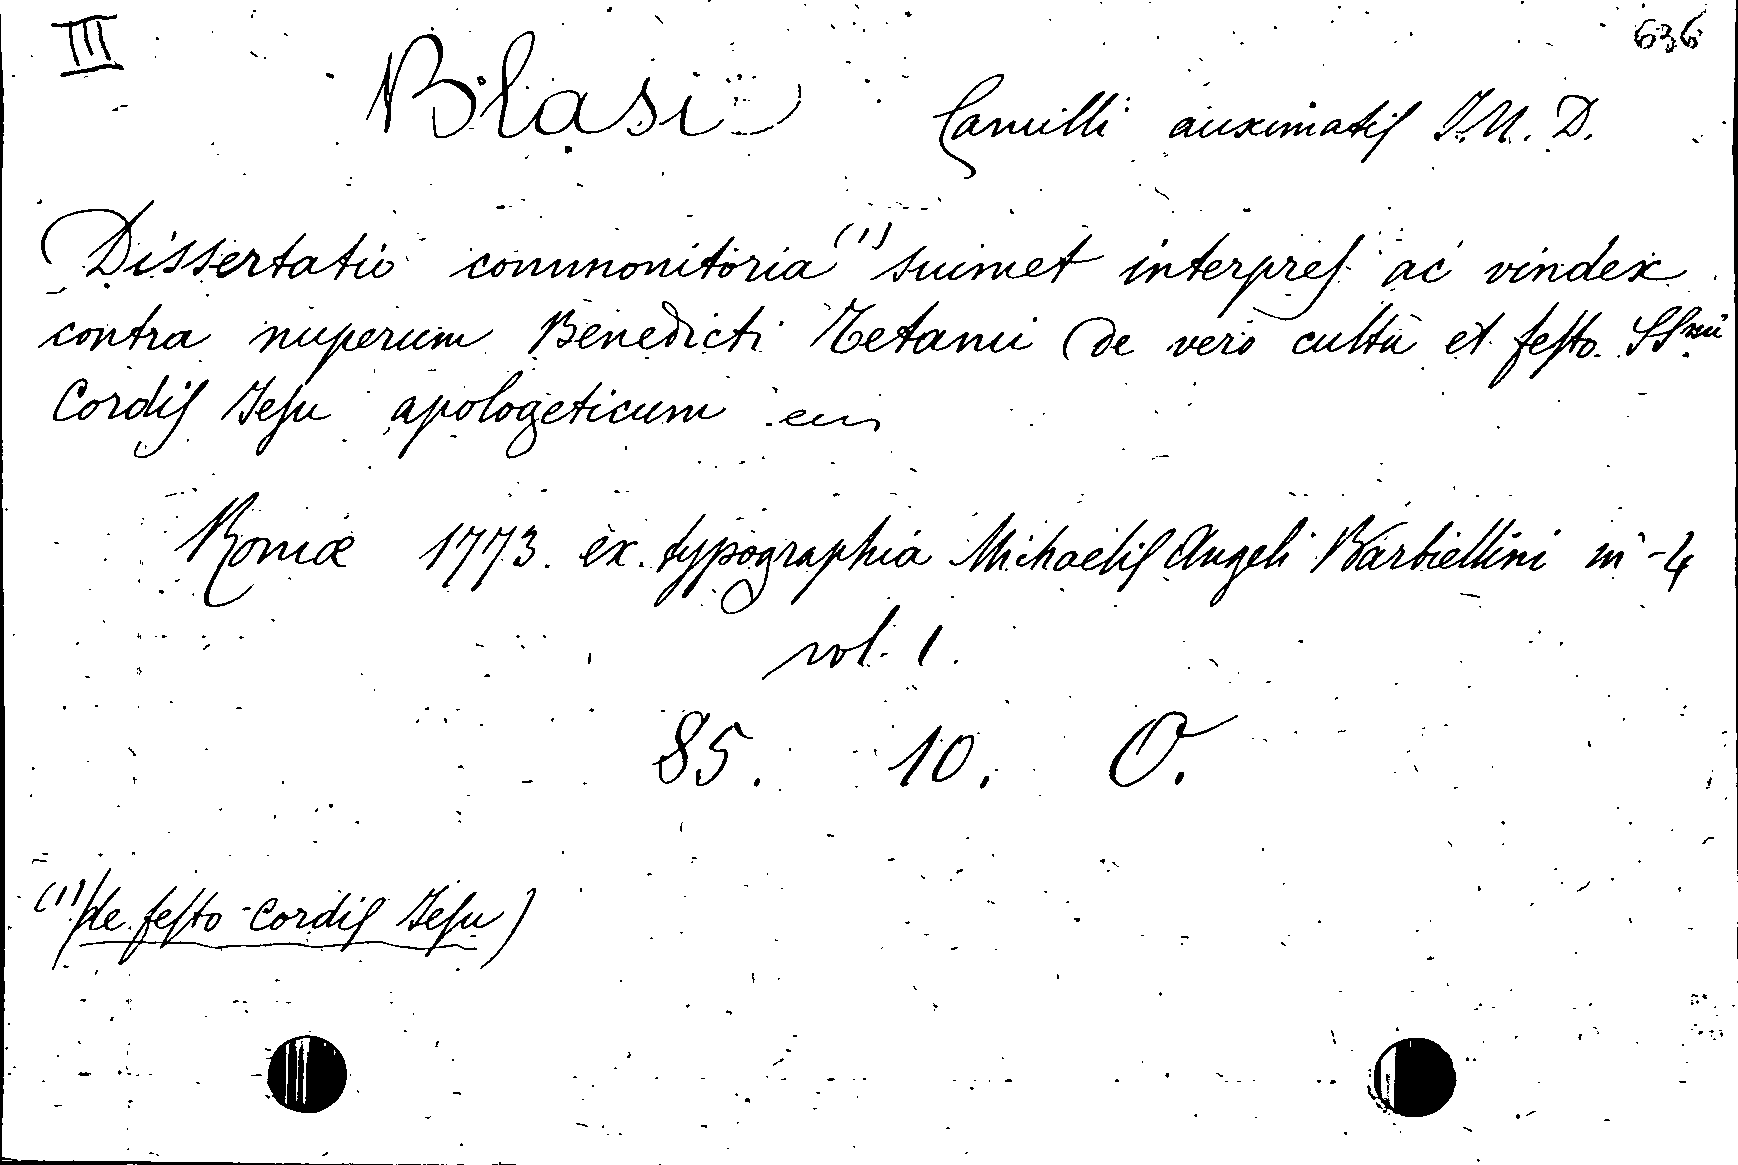 III 636
Blasi Camilli auximatis J. U. D.
Dissertatio commonitoria (1) suimet interpres ac vindex
contra nuperum Benedicti Tetami de vero cultu et festo SSmi
Cordis Jesu apologeticum
Romæ 1773. ex typographia Michaelis Angeli Barbiellini in-4
vol. 1.
85. 10. O.
(1) (de festo Cordis Jesu)